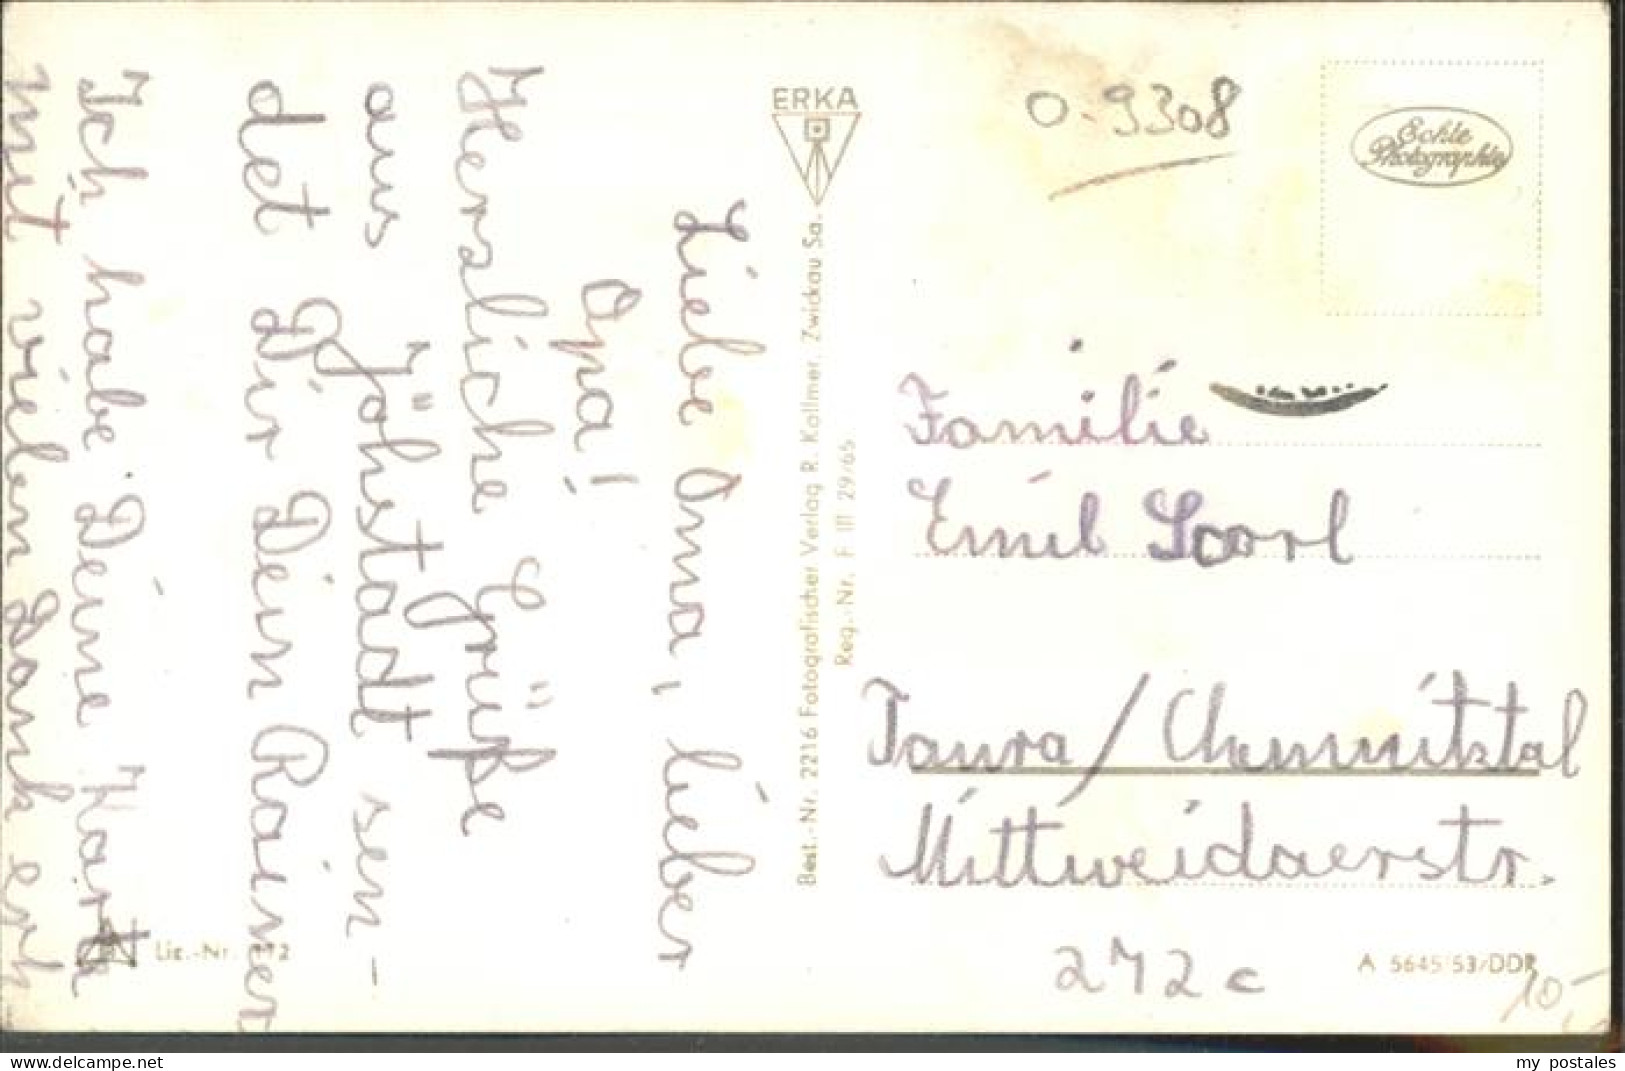 Liebe Oma, lieber
Opa!
Herzliche Grüße
aus Jöhstadt sen-
det Dir Dein Rainer
Ich habe Deine Karte
mit vielen Dank erh
ERKA
Best.-Nr. 2216 Fotografischer Verlag R. Kallmer, Zwickau Sa.
Reg.-Nr. F III 29/65
Lic.-Nr.
O-9308
Echte
Photographie
Familie
Emil
Taura/Chemnitztal
Mittweidaerstr.
272 c
A 5645/53/DDR
10,-
my postales